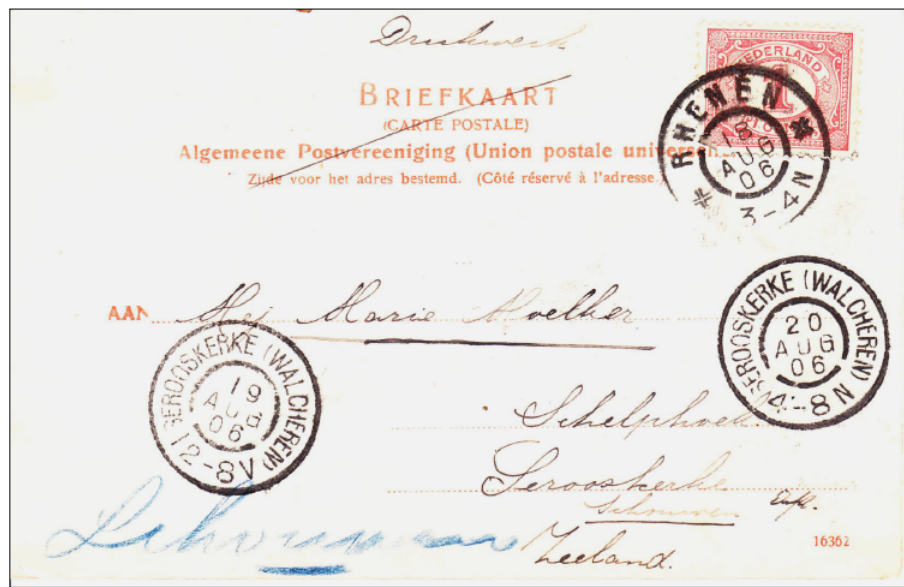 Drukwerk
BRIEFKAART
(CARTE POSTALE)
Algemeene Postvereeniging (Union postale univers
Zijde voor het adres bestemd. (Côté réservé à l'adresse.)
NEDERLAND
1
RHENEN
18
AUG
06
3-4 N
AAN Mej Marie Moelker
SEROOSKERKE (WALCHEREN)
20
AUG
06
4-8 N
SEROOSKERKE (WALCHEREN)
19
AUG
06
12-8 V
Schelphoek
Serooskerke
Schouwen
Zeeland.
Schouwen
16362